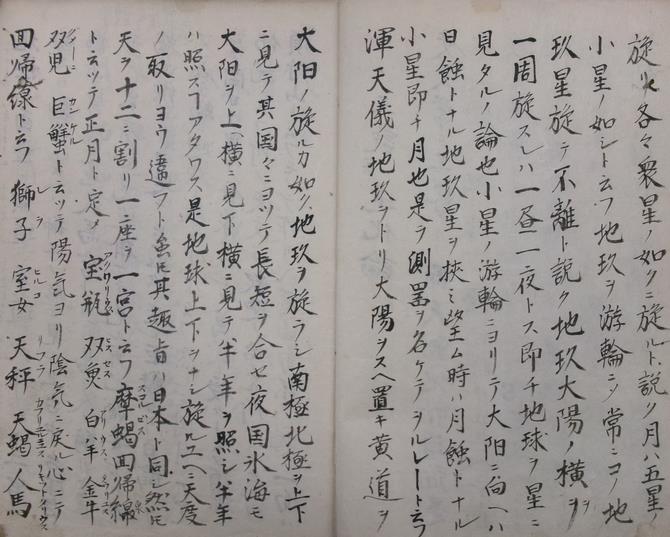 旋リ各々衆星ノ如クニ旋ルト説ク月ハ五星ノ
小星ノ如シト云フ地玖ヲ游輪ニシ常ニコノ地
玖星旋テ不離ト説ク地玖大陽ノ横ヲ
一周旋スレハ一昼一夜トス即チ地球ヲ星ニ
見タルノ論也小星ノ游輪ニヨリテ大阳ニ向ヘハ
日蝕トナル地玖星ヲ挾ミ望ム時ハ月蝕トナル
小星即チ月也是ヲ測置ヲ名ケテヲルレートト云フ
渾天儀ノ地玖ヲトリ大陽ヲスヘ置キ黄道ヲ
大阳ノ旋ルカ如ク地玖ヲ旋ラシ南極北極ヲ上下
ニ見テ其国々ニヨツテ長短ヲ合セ夜国氷海モ
大阳ヲ上ヘ横ニ見下横ニ見テ半年ヲ照シ半年
ハ照スコアタワス是地球上下ヲナシ旋ルユヘニ天度
ノ取リヨウ違フト虽モ其趣旨ハ日本ト同シ然モ
天ヲ十二ニ割リ一座ヲ一宮ト云フ摩蝎回帰線
ト云ツテ正月ト定メ宝瓶 双魚 白羊 金牛
双児 巨蟹ト云ツテ陽気ヨリ陰気ニ戻ル心ニテ
回帰線ト云フ獅子 室女 天秤 天蝎 人馬